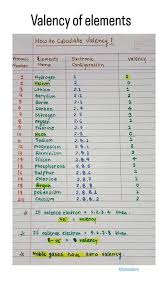 Valency of elements
How to Calculate Valency!
Atomic Number Elements Name Electronic Configuration Valency
1 Hydrogen 1 1
2 Helium 2 0
3 Lithium 2.1 1
4 Beryllium 2.2 2
5 Boron 2.3 3
6 Carbon 2.4 4
7 Nitrogen 2.5 3
8 Oxygen 2.6 2
9 Fluorine 2.7 1
10 Neon 2.8 0
11 Sodium 2.8.1 1
12 Magnesium 2.8.2 2
13 Aluminium 2.8.3 3
14 Silicon 2.8.4 4
15 Phosphorus 2.8.5 3
16 Sulphur 2.8.6 2
17 Chlorine 2.8.7 1
18 Argon 2.8.8 0
19 Potassium 2.8.8.1 1
20 Calcium 2.8.8.2 2
If valence electron = 1,2,3,4 then
valency
If valence electron = 5,6,7,8 then
valency
Noble gases have zero valency